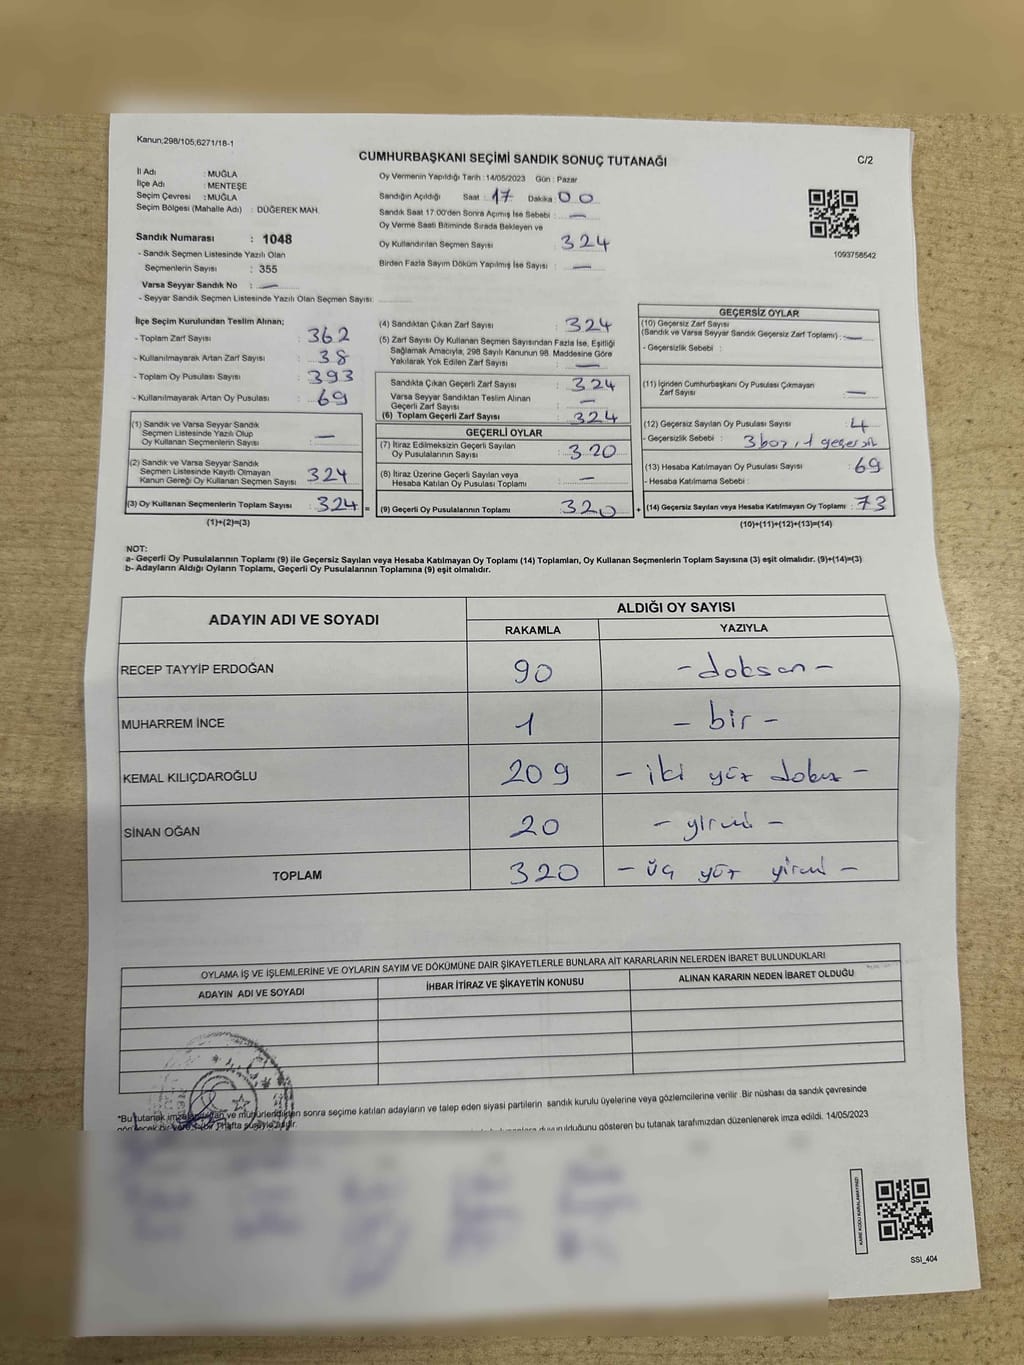 Kanun;298/105;6271/18-1
CUMHURBAŞKANI SEÇİMİ SANDIK SONUÇ TUTANAĞI
C/2
İl Adı : MUĞLA
İlçe Adı : MENTEŞE
Seçim Çevresi : MUĞLA
Seçim Bölgesi (Mahalle Adı) : DÜĞEREK MAH.
Sandık Numarası : 1048
- Sandık Seçmen Listesinde Yazılı Olan
Seçmenlerin Sayısı : 355
Varsa Seyyar Sandık No : —
- Seyyar Sandık Seçmen Listesinde Yazılı Olan Seçmen Sayısı:
Oy Vermenin Yapıldığı Tarih : 14/05/2023 Gün : Pazar
Sandığın Açıldığı Saat : 17 Dakika : 00
Sandık Saat 17:00'den Sonra Açımış İse Sebebi : —
Oy Verme Saati Bitiminde Sırada Bekleyen ve
Oy Kullandırılan Seçmen Sayısı : 324
Birden Fazla Sayım Döküm Yapılmış İse Sayısı : —
1093758542
İlçe Seçim Kurulundan Teslim Alınan;
- Toplam Zarf Sayısı : 362
- Kullanılmayarak Artan Zarf Sayısı : 38
- Toplam Oy Pusulası Sayısı : 393
- Kullanılmayarak Artan Oy Pusulası : 69
(1) Sandık ve Varsa Seyyar Sandık
Seçmen Listesinde Yazılı Olup
Oy Kullanan Seçmenlerin Sayısı : —
(2) Sandık ve Varsa Seyyar Sandık
Seçmen Listesinde Kayıtlı Olmayan
Kanun Gereği Oy Kullanan Seçmen Sayısı : 324
(3) Oy Kullanan Seçmenlerin Toplam Sayısı : 324 =
(1)+(2)=(3)
(4) Sandıktan Çıkan Zarf Sayısı : 324
(5) Zarf Sayısı Oy Kullanan Seçmen Sayısından Fazla İse, Eşitliği
Sağlamak Amacıyla, 298 Sayılı Kanunun 98. Maddesine Göre
Yakılarak Yok Edilen Zarf Sayısı : —
Sandıkta Çıkan Geçerli Zarf Sayısı : 324
Varsa Seyyar Sandıktan Teslim Alınan
Geçerli Zarf Sayısı : —
(6) Toplam Geçerli Zarf Sayısı : 324
GEÇERLİ OYLAR
(7) İtiraz Edilmeksizin Geçerli Sayılan
Oy Pusulalarının Sayısı : 320
(8) İtiraz Üzerine Geçerli Sayılan veya
Hesaba Katılan Oy Pusulası Toplamı : —
(9) Geçerli Oy Pusulalarının Toplamı : 320 +
GEÇERSİZ OYLAR
(10) Geçersiz Zarf Sayısı
(Sandık ve Varsa Seyyar Sandık Geçersiz Zarf Toplamı) : —
- Geçersizlik Sebebi :
(11) İçinden Cumhurbaşkanı Oy Pusulası Çıkmayan
Zarf Sayısı : —
(12) Geçersiz Sayılan Oy Pusulası Sayısı : 4
- Geçersizlik Sebebi : 3 boz, 1 geçersiz
(13) Hesaba Katılmayan Oy Pusulası Sayısı : 69
- Hesaba Katılmama Sebebi :
(14) Geçersiz Sayılan veya Hesaba Katılmayan Oy Toplamı : 73
(10)+(11)+(12)+(13)=(14)
NOT:
a- Geçerli Oy Pusulalarının Toplamı (9) ile Geçersiz Sayılan veya Hesaba Katılmayan Oy Toplamı (14) Toplamları, Oy Kullanan Seçmenlerin Toplam Sayısına (3) eşit olmalıdır. (9)+(14)=(3)
b- Adayların Aldığı Oyların Toplamı, Geçerli Oy Pusulalarının Toplamına (9) eşit olmalıdır.
ADAYIN ADI VE SOYADI
ALDIĞI OY SAYISI
RAKAMLA YAZIYLA
RECEP TAYYİP ERDOĞAN 90 - doksan -
MUHARREM İNCE 1 - bir -
KEMAL KILIÇDAROĞLU 209 - iki yüz dokuz -
SİNAN OĞAN 20 - yirmi -
TOPLAM 320 - üç yüz yirmi -
OYLAMA İŞ VE İŞLEMLERİNE VE OYLARIN SAYIM VE DÖKÜMÜNE DAİR ŞİKAYETLERLE BUNLARA AİT KARARLARIN NELERDEN İBARET BULUNDUKLARI
ADAYIN ADI VE SOYADI İHBAR İTİRAZ VE ŞİKAYETİN KONUSU ALINAN KARARIN NEDEN İBARET OLDUĞU
*Bu tutanak ve mühürlendikten sonra seçime katılan adayların ve talep eden siyasi partilerin sandık kurulu üyelerine veya gözlemcilerine verilir .Bir nüshası da sandık çevresinde
hafta süreyle asılır. duyurulduğunu gösteren bu tutanak tarafımızdan düzenlenerek imza edildi. 14/05/2023
KARE KODU KARALAMAYINIZ!
SSI_404